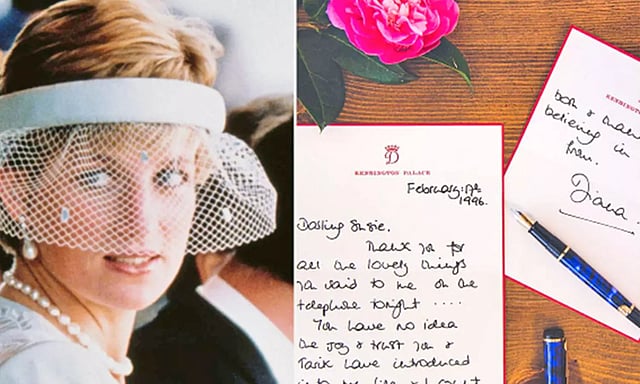 D
KENSINGTON PALACE
February: 17th
1996.
Darling Susie.
Thank you for
all the lovely things
you said to me on the
telephone tonight ....
You have no idea
the joy & trust you &
Tarik have introduced
into my life &
KENSINGTON
believing in
him.
Diana.